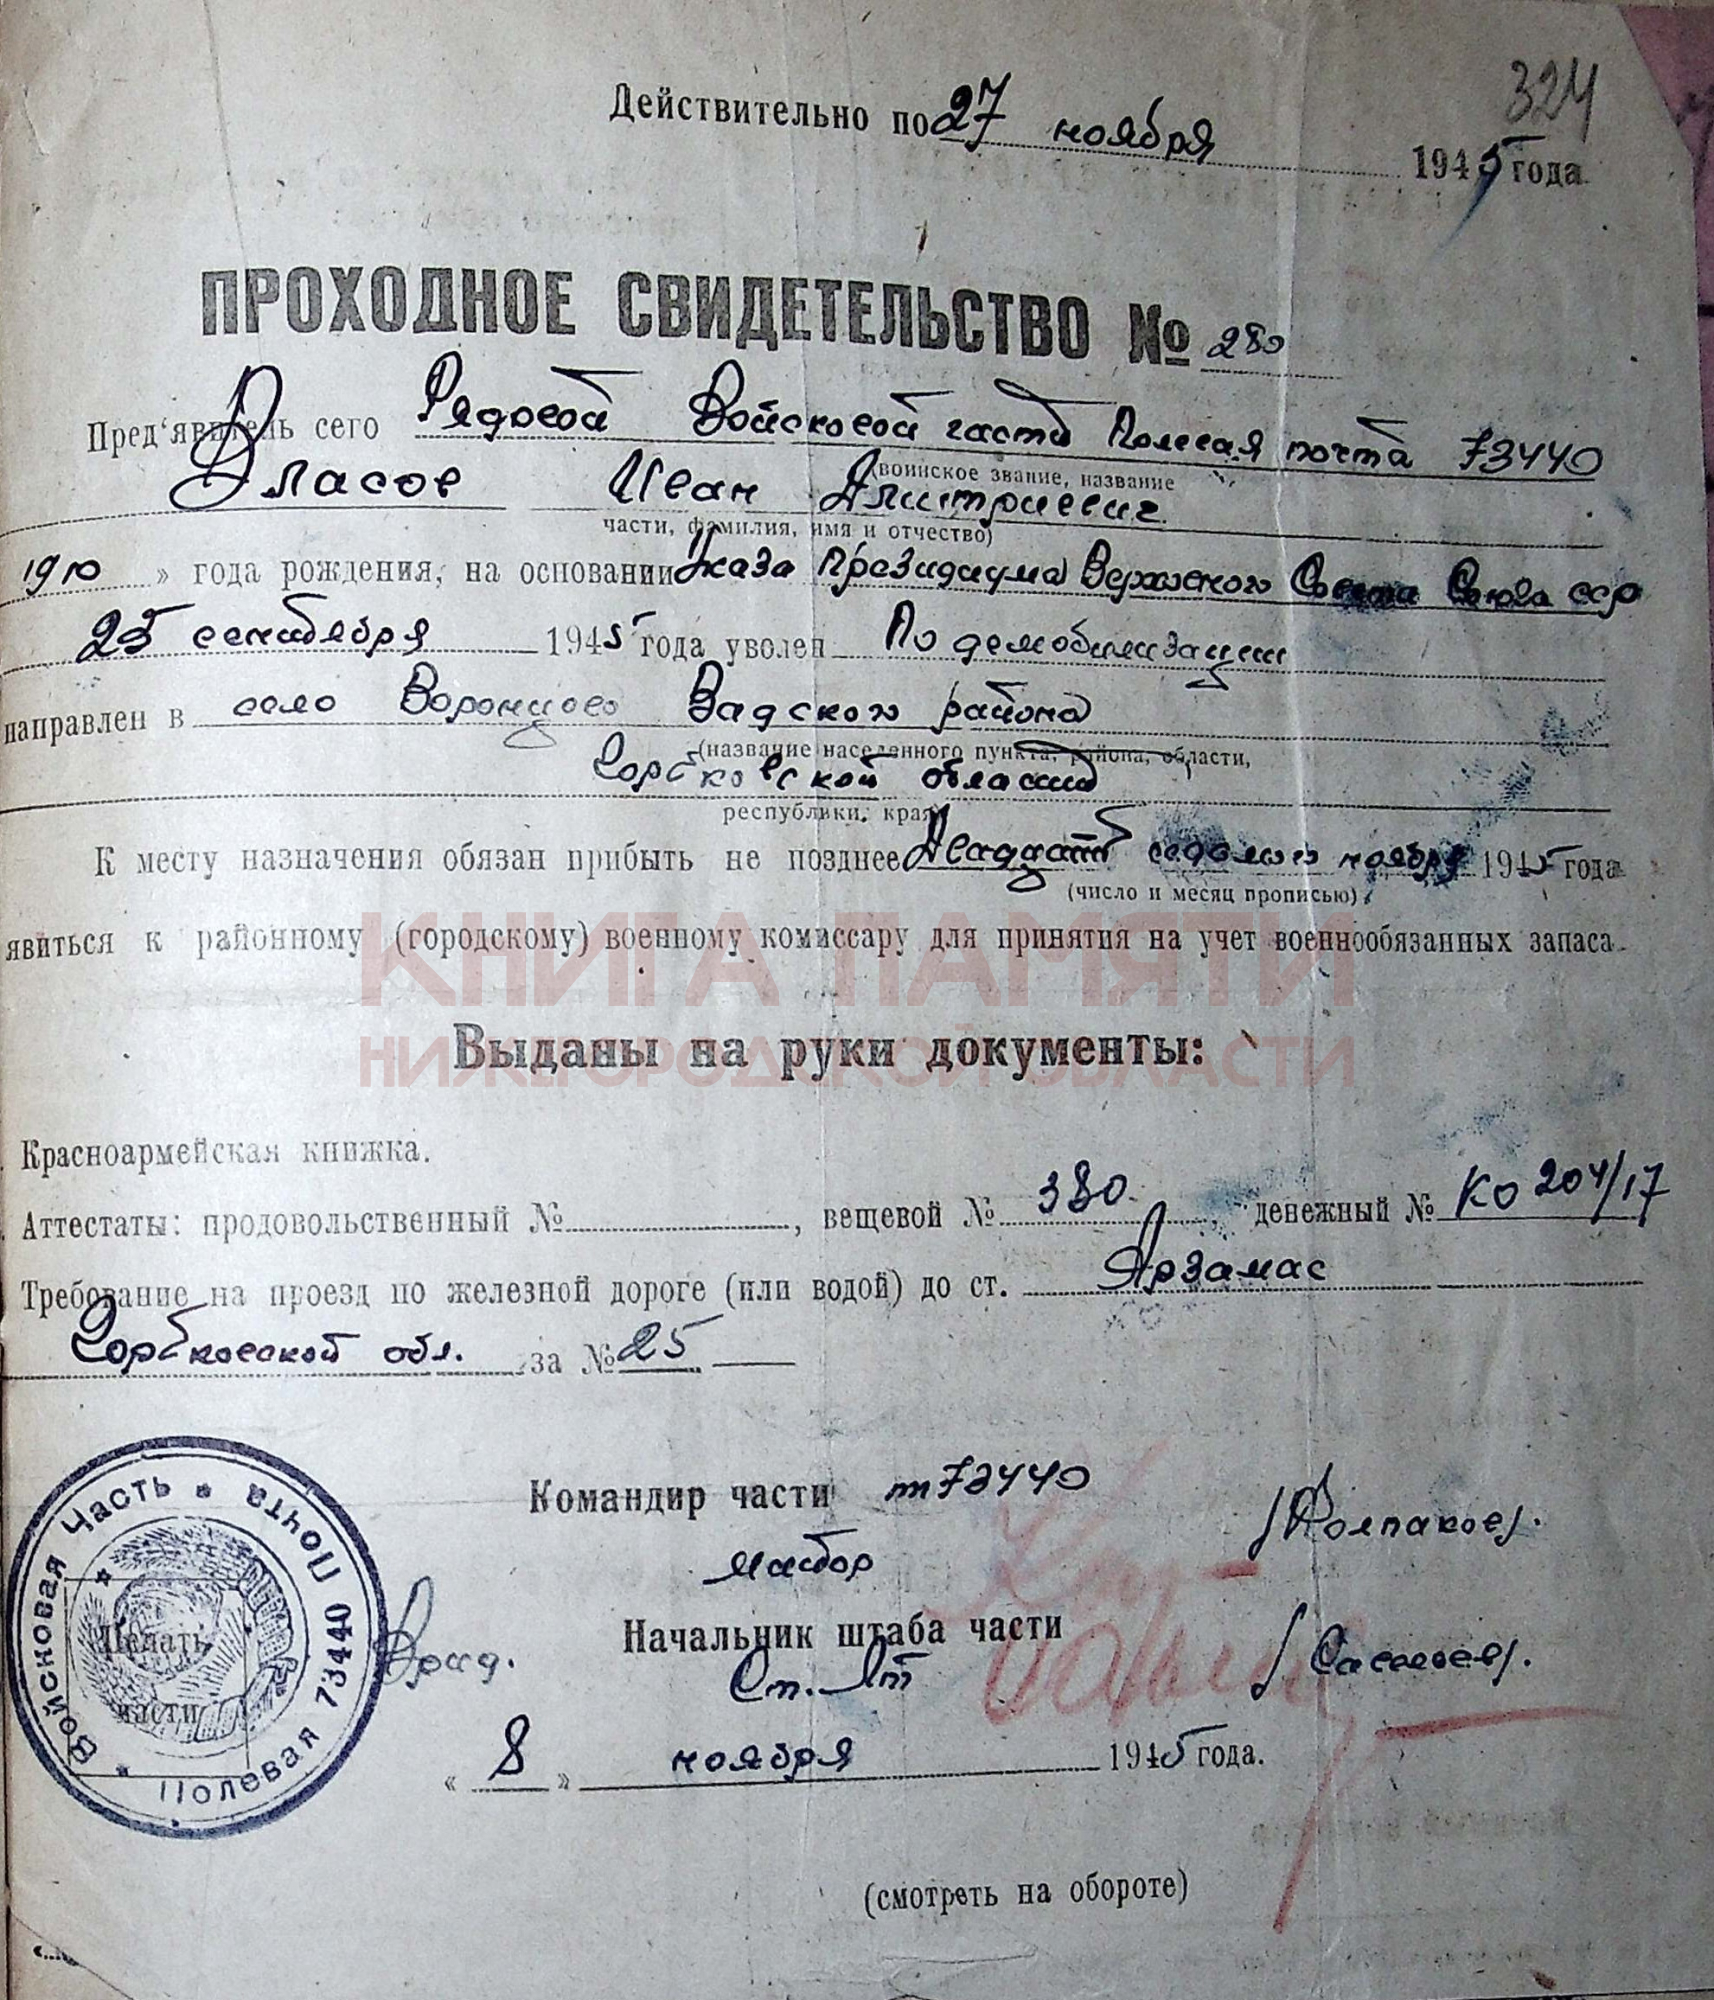 324
Действительно по 27 ноября 1945 года.
ПРОХОДНОЕ СВИДЕТЕЛЬСТВО № 280
Пред‘явитель сего Рядовой Войсковой части Полевая почта 73440
(воинское звание, название
Власов Иван Дмитриевич
части, фамилия, имя и отчество)
1910 » года рождения, на основании Указа Президиума Верховного Совета Союза сср
25 сентября 1945 года уволен По демобилизации
направлен в село Воронцово Вадского района
(название населенного пункта, района, области,
Горьковской области
республики, края)
К месту назначения обязан прибыть не позднее Двадцать седьмого ноября 1945 года
(число и месяц прописью)
явиться к районному (городскому) военному комиссару для принятия на учет военнообязанных запаса.
КНИГА ПАМЯТИ
НИЖЕГОРОДСКОЙ ОБЛАСТИ
Выданы на руки документы:
Красноармейская книжка.
Аттестаты: продовольственный № , вещевой № 380 , денежный № КО 204/17
Требование на проезд по железной дороге (или водой) до ст. Арзамас
Горьковской обл. за № 25
Командир части пп 73440
майор /Колпаков/.
Начальник штаба части
Ст. Лт
« 8 » ноября 1945 года.
Войсковая Часть * Полевая Почта 73440 *
Печать
части
(смотреть на обороте)